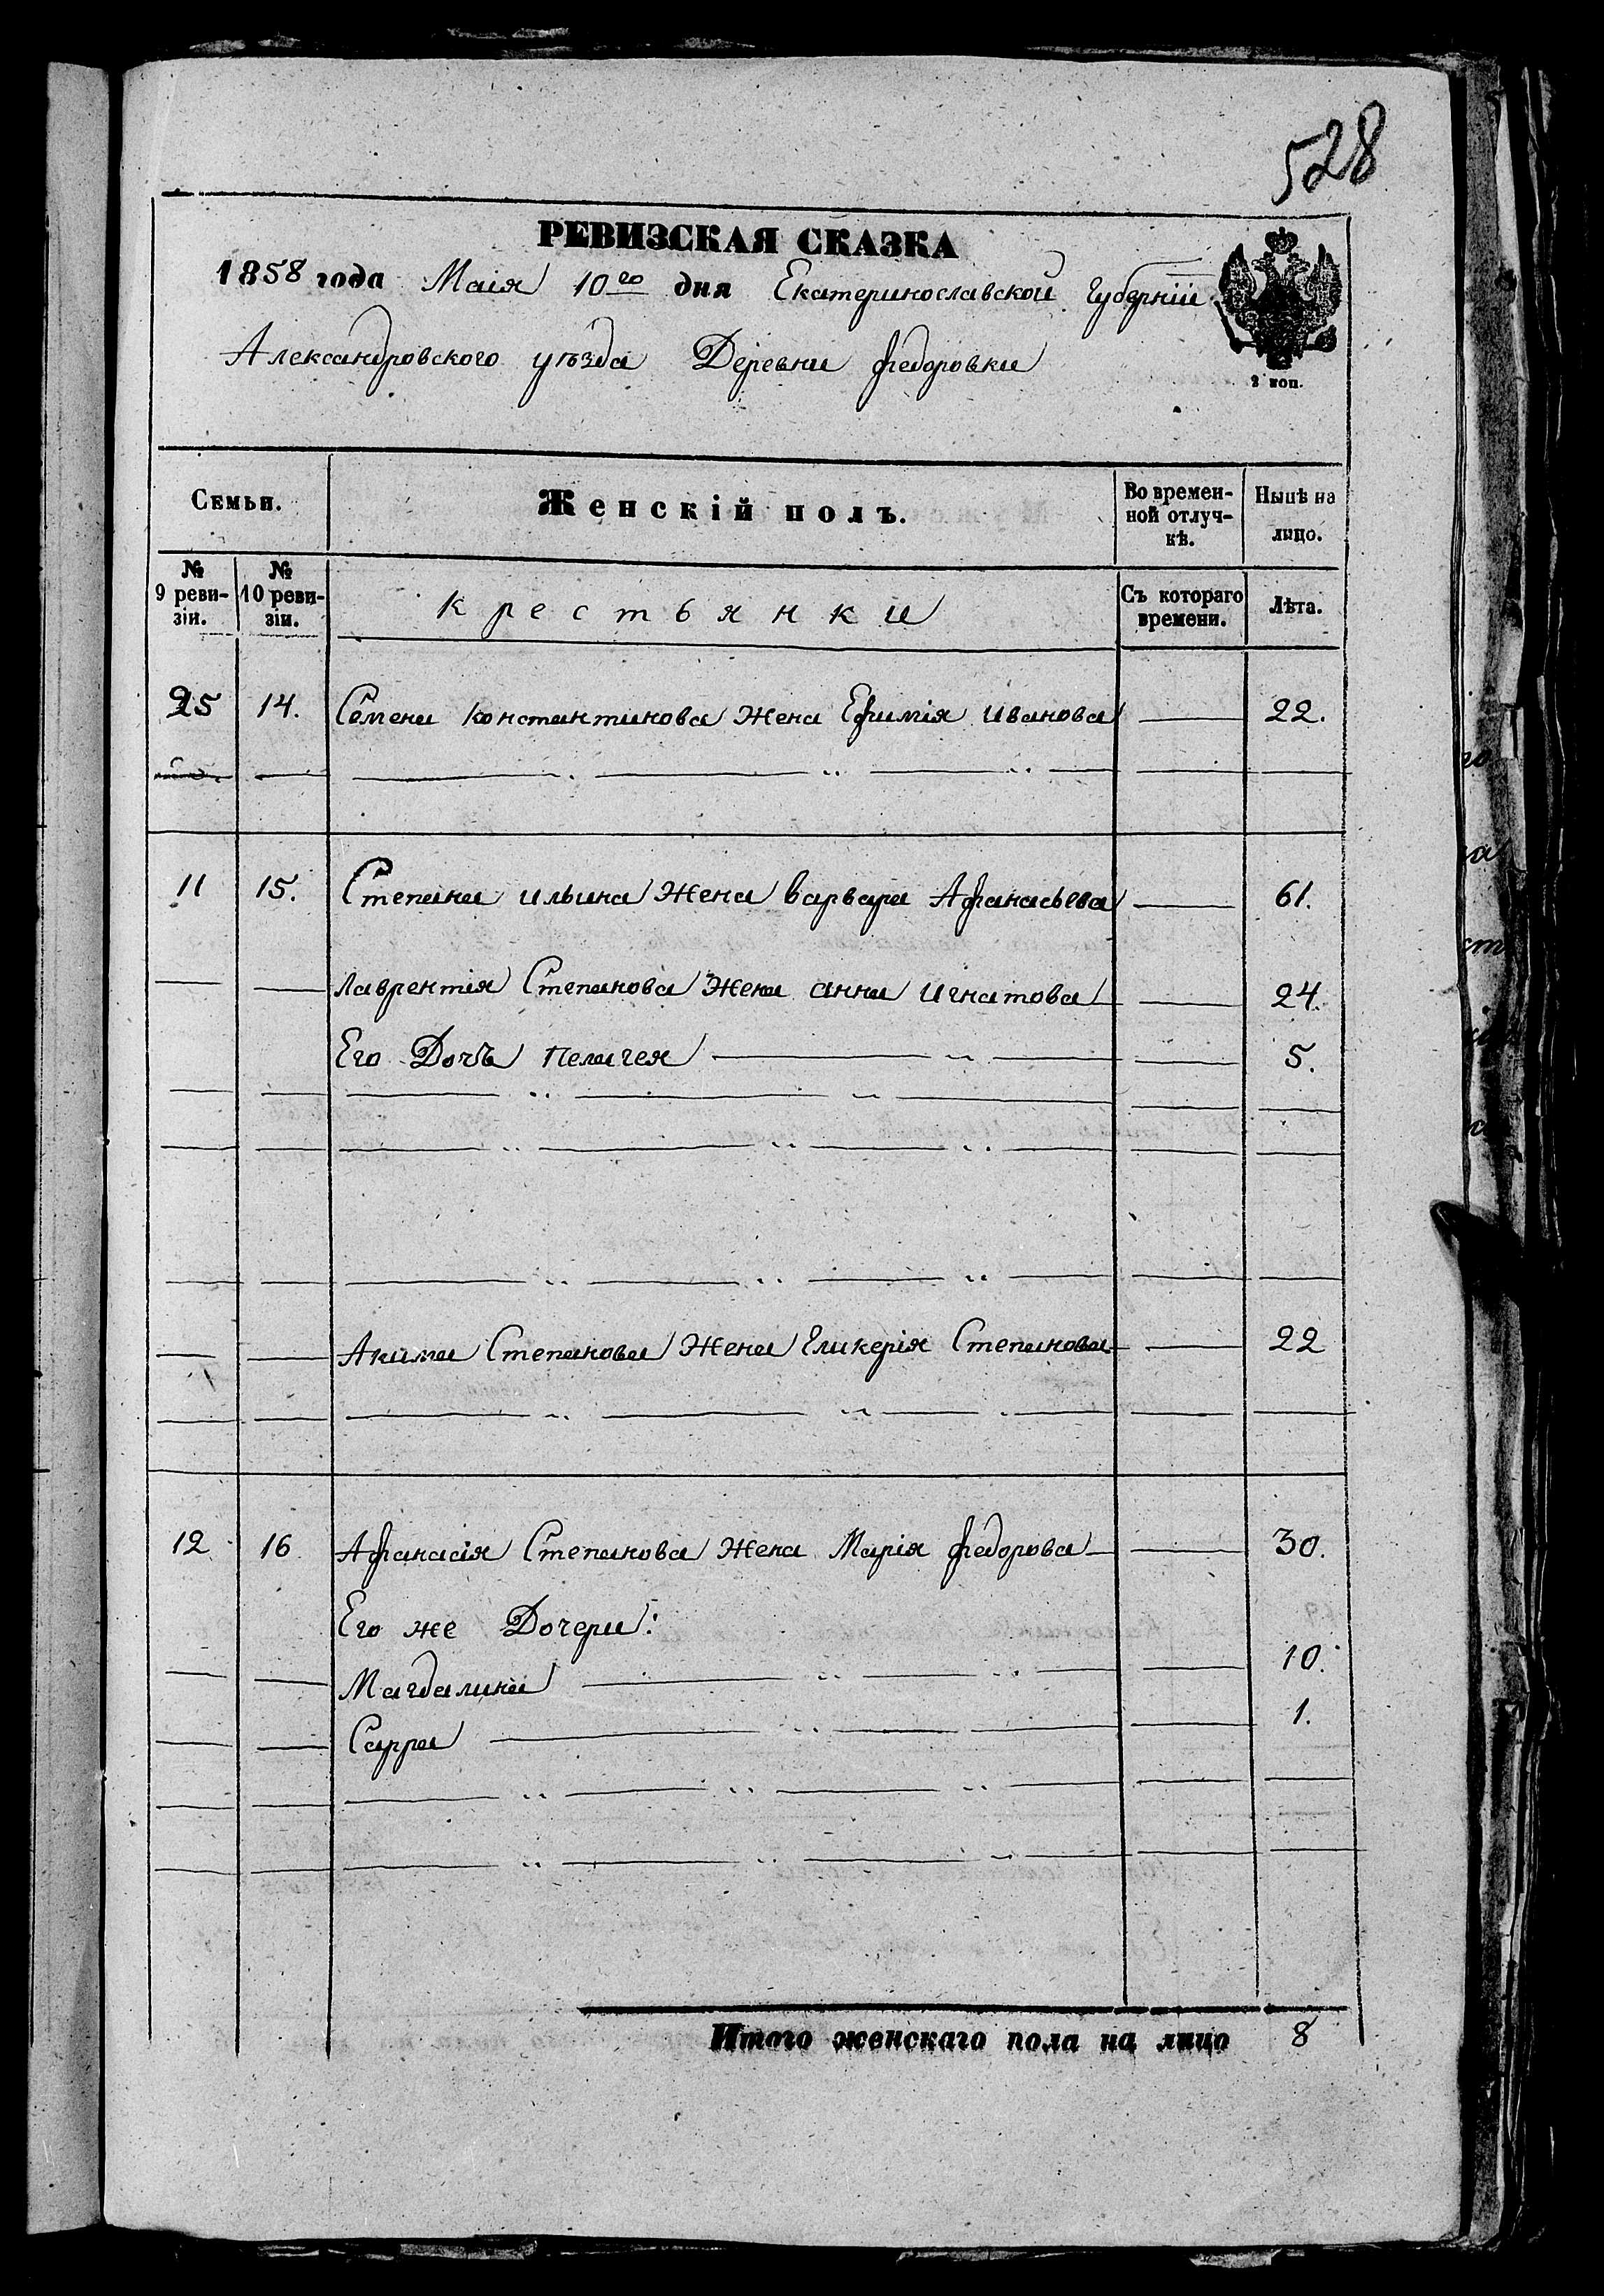 528
РЕВИЗСКАЯ СКАЗКА
1858 года Маія 10го дня Екатеринославской Губерніи
Александровского уѣзда Деревни Федоровки
2 коп.
Семьи. Женскій полъ. Во времен-ной отлуч-кѣ. Нынѣ на лицо.
№ 9 реви-зіи. № 10 реви-зіи. Крестьянки Съ котораго времени. Лѣта.
25 14. Семена Константинова Жена Ефимія Иванова 22.
11 15. Степана Ильина Жена Варвара Афанасьева 61.
Лаврентія Степанова Жена Анна Игнатова 24.
Его Дочь Пелагея 5.
Акима Степанова Жена Гликерія Степанова 22
12 16 Афанасія Степанова Жена Марія Федорова 30.
Его же Дочери:
Магдалина 10.
Сарра 1.
Итого женскаго пола на лицо 8